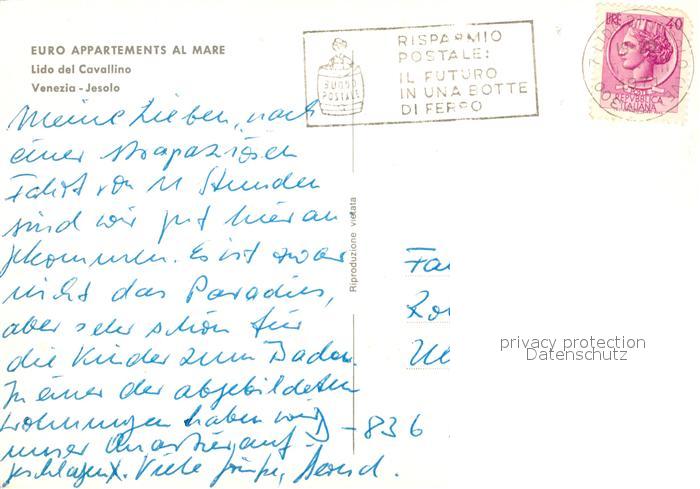 EURO APPARTEMENTS AL MARE
Lido del Cavallino
Venezia - Jesolo
RISPARMIO
POSTALE:
IL FUTURO
IN UNA BOTTE
DI FERRO
BUONO
POSTALE
LIRE 40
REPVBBLICA
ITALIANA
Meine Lieben, nach
einer strapaziösen
Fahrt von 11 Stunden
sind wir gut hier an
gekommen. Es ist zwar
nicht das Paradies,
aber sehr schön für
die Kinder zum Baden.
In einer der abgebildeten
Wohnungen haben wir
unser Quartier auf-
geschlagen. Viele Grüße,
Riproduzione vietata
Fa
D-836
privacy protection
Datenschutz